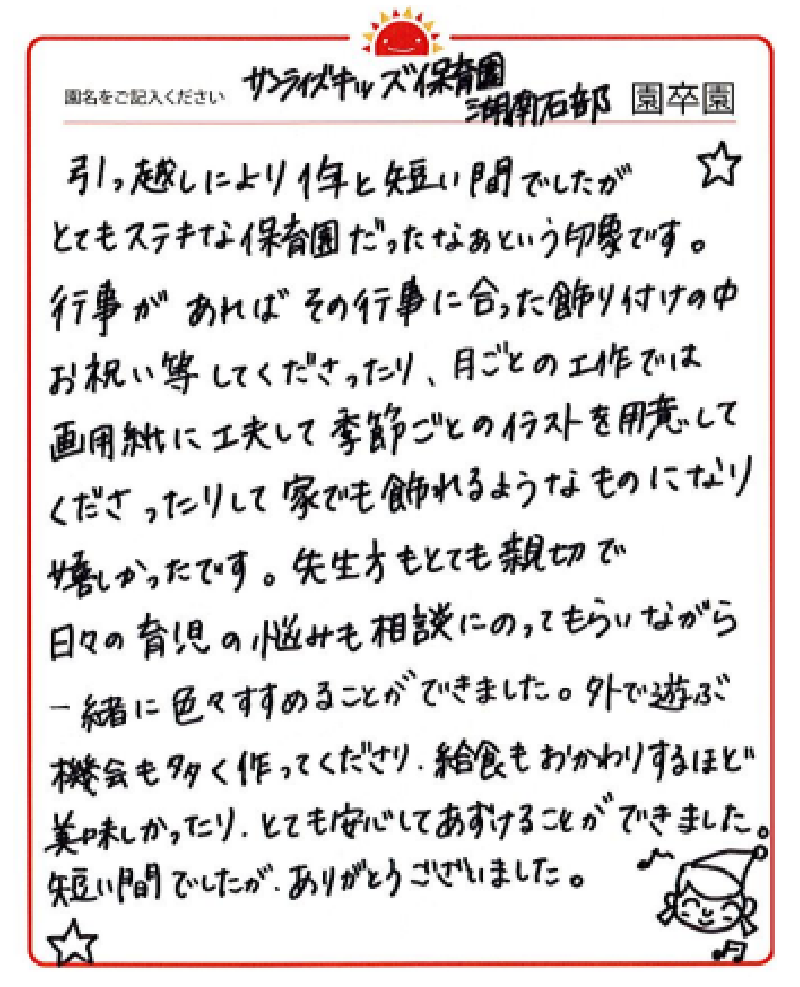 サンライズキッズ保育園
園名をご記入ください 湖南石部 園卒園
引っ越しにより1年と短い間でしたが
とてもステキな保育園だったなぁという印象です。
行事があればその行事に合った飾り付けの中
お祝い等してくださったり、月ごとの工作では
画用紙に工夫して季節ごとのイラストを用意して
くださったりして家でも飾れるようなものになり
嬉しかったです。先生方もとても親切で
日々の育児の悩みも相談にのってもらいながら
一緒に色々すすめることができました。外で遊ぶ
機会も多く作ってくださり、給食もおかわりするほど
美味しかったり、とても安心してあずけることができました。
短い間でしたが、ありがとうございました。